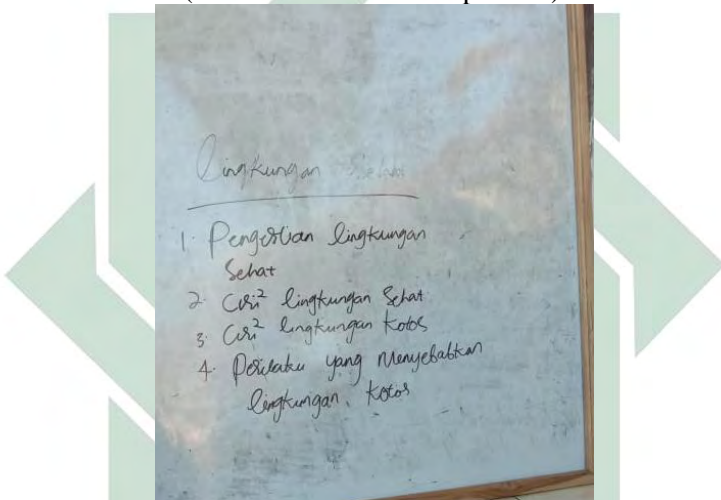 Lingkungan Sehat
1. Pengertian lingkungan
Sehat
2. Ciri² lingkungan Sehat
3. Ciri² lingkungan Kotor
4. Perilaku yang Menyebabkan
lingkungan, Kotor